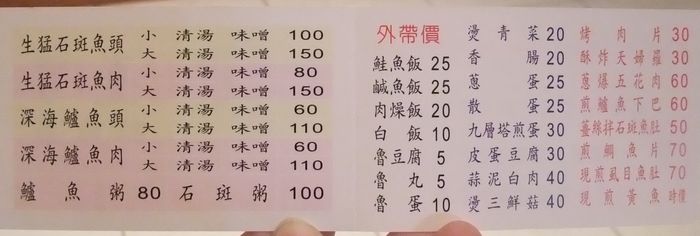 生猛石斑魚頭 小 清湯 味噌 100
大 清湯 味噌 150
生猛石斑魚肉 小 清湯 味噌 80
大 清湯 味噌 150
深海鱸魚頭 小 清湯 味噌 60
大 清湯 味噌 110
深海鱸魚肉 小 清湯 味噌 60
大 清湯 味噌 110
鱸魚粥 80 石斑粥 100
外帶價
鮭魚飯 25
鹹魚飯 25
肉燥飯 20
白飯 10
魯豆腐 5
魯丸 5
魯蛋 10
燙青菜 20
香腸 20
蔥蛋 25
散蛋 25
九層塔煎蛋 30
皮蛋豆腐 30
蒜泥白肉 40
燙三鮮菇 40
烤肉片 30
酥炸天婦羅 30
蔥爆五花肉 60
煎鱸魚下巴 60
薑絲拌石斑魚肚 50
煎鯛魚片 70
現煎虱目魚肚 70
現煎黃魚 時價